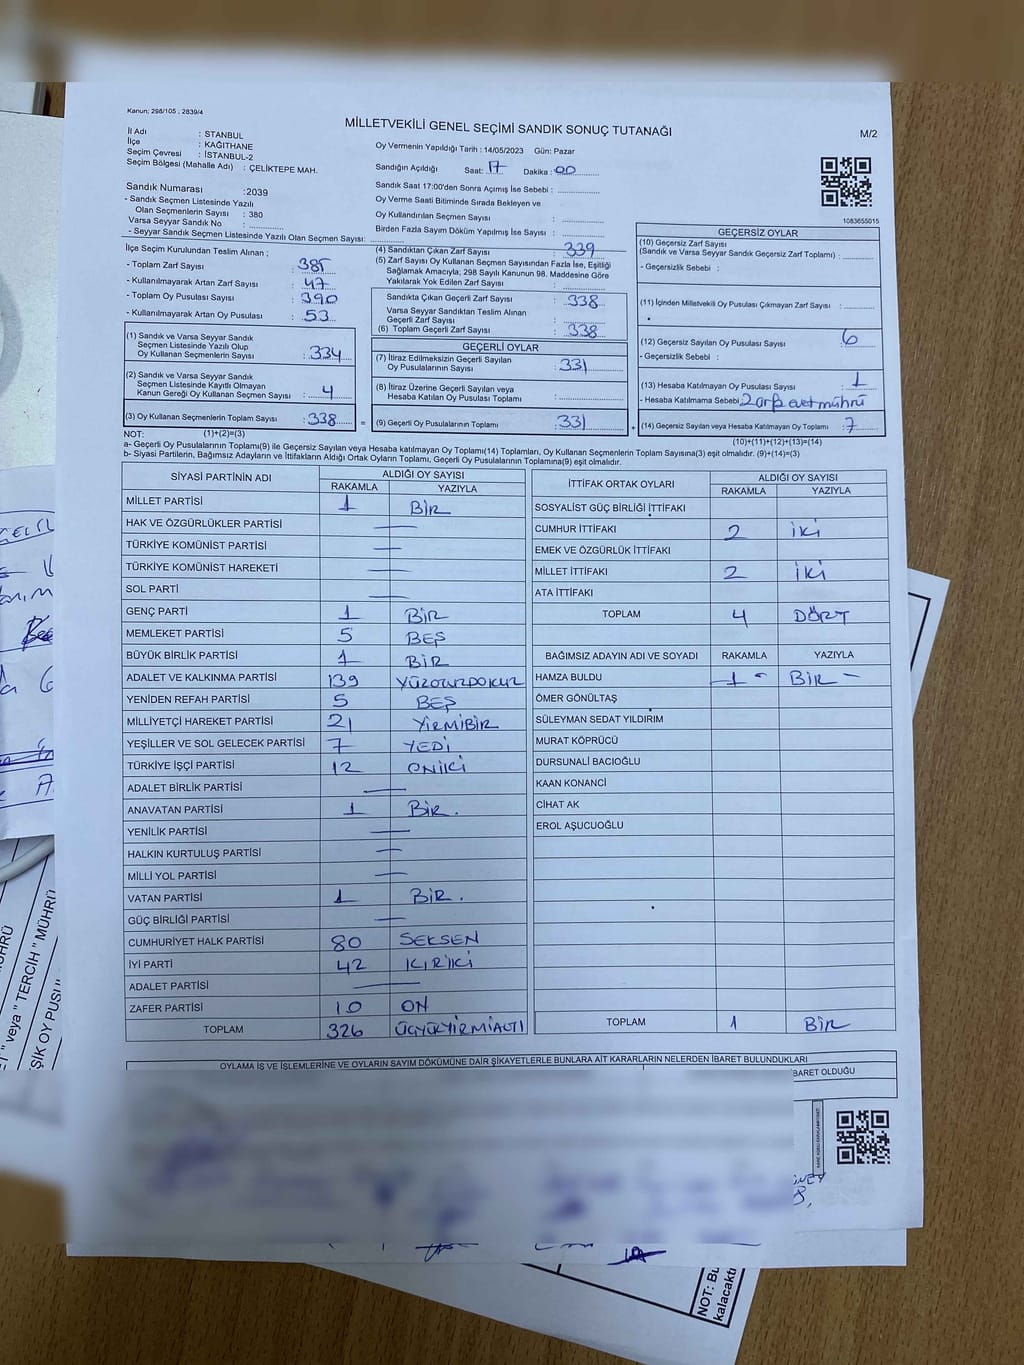 Kanun; 298/105 , 2839/4
MİLLETVEKİLİ GENEL SEÇİMİ SANDIK SONUÇ TUTANAĞI
M/2
İl Adı : STANBUL
İlçe : KAĞITHANE
Seçim Çevresi : İSTANBUL-2
Seçim Bölgesi (Mahalle Adı) : ÇELİKTEPE MAH.
Oy Vermenin Yapıldığı Tarih : 14/05/2023 Gün: Pazar
Sandığın Açıldığı Saat: 17 Dakika : 00
Sandık Saat 17:00'den Sonra Açımış İse Sebebi :
Oy Verme Saati Bitiminde Sırada Bekleyen ve
Oy Kullandırılan Seçmen Sayısı :
Birden Fazla Sayım Döküm Yapılmış İse Sayısı :
1083655015
Sandık Numarası :2039
- Sandık Seçmen Listesinde Yazılı
Olan Seçmenlerin Sayısı : 380
Varsa Seyyar Sandık No :
- Seyyar Sandık Seçmen Listesinde Yazılı Olan Seçmen Sayısı:
İlçe Seçim Kurulundan Teslim Alınan ;
- Toplam Zarf Sayısı : 385
- Kullanılmayarak Artan Zarf Sayısı : 47
- Toplam Oy Pusulası Sayısı : 390
- Kullanılmayarak Artan Oy Pusulası : 53
(1) Sandık ve Varsa Seyyar Sandık
Seçmen Listesinde Yazılı Olup
Oy Kullanan Seçmenlerin Sayısı : 334
(2) Sandık ve Varsa Seyyar Sandık
Seçmen Listesinde Kayıtlı Olmayan
Kanun Gereği Oy Kullanan Seçmen Sayısı : 4
(3) Oy Kullanan Seçmenlerin Toplam Sayısı : 338
(1)+(2)=(3)
(4) Sandıktan Çıkan Zarf Sayısı : 339
(5) Zarf Sayısı Oy Kullanan Seçmen Sayısından Fazla İse, Eşitliği
Sağlamak Amacıyla; 298 Sayılı Kanunun 98. Maddesine Göre
Yakılarak Yok Edilen Zarf Sayısı :
Sandıkta Çıkan Geçerli Zarf Sayısı : 338
Varsa Seyyar Sandıktan Teslim Alınan
Geçerli Zarf Sayısı :
(6) Toplam Geçerli Zarf Sayısı : 338
GEÇERLİ OYLAR
(7) İtiraz Edilmeksizin Geçerli Sayılan
Oy Pusulalarının Sayısı : 331
(8) İtiraz Üzerine Geçerli Sayılan veya
Hesaba Katılan Oy Pusulası Toplamı :
= (9) Geçerli Oy Pusulalarının Toplamı : 331
GEÇERSİZ OYLAR
(10) Geçersiz Zarf Sayısı
(Sandık ve Varsa Seyyar Sandık Geçersiz Zarf Toplamı) :
- Geçersizlik Sebebi :
(11) İçinden Milletvekili Oy Pusulası Çıkmayan Zarf Sayısı :
(12) Geçersiz Sayılan Oy Pusulası Sayısı : 6
- Geçersizlik Sebebi :
(13) Hesaba Katılmayan Oy Pusulası Sayısı : 1
- Hesaba Katılmama Sebebi 2 evet mührü
+ (14) Geçersiz Sayılan veya Hesaba Katılmayan Oy Toplamı : 7
(10)+(11)+(12)+(13)=(14)
NOT:
a- Geçerli Oy Pusulalarının Toplamı(9) ile Geçersiz Sayılan veya Hesaba Katılmayan Oy Toplamı(14) Toplamları, Oy Kullanan Seçmenlerin Toplam Sayısına(3) eşit olmalıdır. (9)+(14)=(3)
b- Siyasi Partilerin, Bağımsız Adayların ve İttifakların Aldığı Ortak Oyların Toplamı, Geçerli Oy Pusulalarının Toplamına(9) eşit olmalıdır.
SİYASİ PARTİNİN ADI ALDIĞI OY SAYISI
RAKAMLA YAZIYLA
MİLLET PARTİSİ 1 BİR
HAK VE ÖZGÜRLÜKLER PARTİSİ —
TÜRKİYE KOMÜNİST PARTİSİ —
TÜRKİYE KOMÜNİST HAREKETİ —
SOL PARTİ —
GENÇ PARTİ 1 BİR
MEMLEKET PARTİSİ 5 BEŞ
BÜYÜK BİRLİK PARTİSİ 1 BİR
ADALET VE KALKINMA PARTİSİ 139 YÜZOTUZDOKUZ
YENİDEN REFAH PARTİSİ 5 BEŞ
MİLLİYETÇİ HAREKET PARTİSİ 21 YİRMİBİR
YEŞİLLER VE SOL GELECEK PARTİSİ 7 YEDİ
TÜRKİYE İŞÇİ PARTİSİ 12 ONİKİ
ADALET BİRLİK PARTİSİ —
ANAVATAN PARTİSİ 1 BİR.
YENİLİK PARTİSİ —
HALKIN KURTULUŞ PARTİSİ —
MİLLİ YOL PARTİSİ —
VATAN PARTİSİ 1 BİR.
GÜÇ BİRLİĞİ PARTİSİ —
CUMHURİYET HALK PARTİSİ 80 SEKSEN
İYİ PARTİ 42 KIRKİKİ
ADALET PARTİSİ —
ZAFER PARTİSİ 10 ON
TOPLAM 326 ÜÇYÜZYİRMİALTI
İTTİFAK ORTAK OYLARI ALDIĞI OY SAYISI
RAKAMLA YAZIYLA
SOSYALİST GÜÇ BİRLİĞİ İTTİFAKI
CUMHUR İTTİFAKI 2 İKİ
EMEK VE ÖZGÜRLÜK İTTİFAKI
MİLLET İTTİFAKI 2 İKİ
ATA İTTİFAKI
TOPLAM 4 DÖRT
BAĞIMSIZ ADAYIN ADI VE SOYADI RAKAMLA YAZIYLA
HAMZA BULDU -1- BİR -
ÖMER GÖNÜLTAŞ
SÜLEYMAN SEDAT YILDIRIM
MURAT KÖPRÜCÜ
DURSUNALİ BACIOĞLU
KAAN KONANCİ
CİHAT AK
EROL AŞUCUOĞLU
TOPLAM 1 BİR
OYLAMA İŞ VE İŞLEMLERİNE VE OYLARIN SAYIM DÖKÜMÜNE DAİR ŞİKAYETLERLE BUNLARA AİT KARARLARIN NELERDEN İBARET BULUNDUKLARI
BARET OLDUĞU
" veya " TERCİH " MÜHRÜ
ŞIK OY PUSU
NOT: Bu
kalacaktı